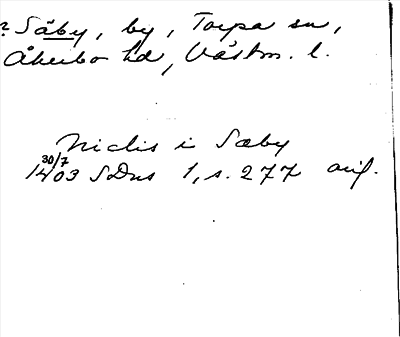 ? Säby, by, Torpa sn,
Åkerbo hd, Västm. l.
Niclis i Sæby
30/7
1403 SDns 1, s. 277 avif.